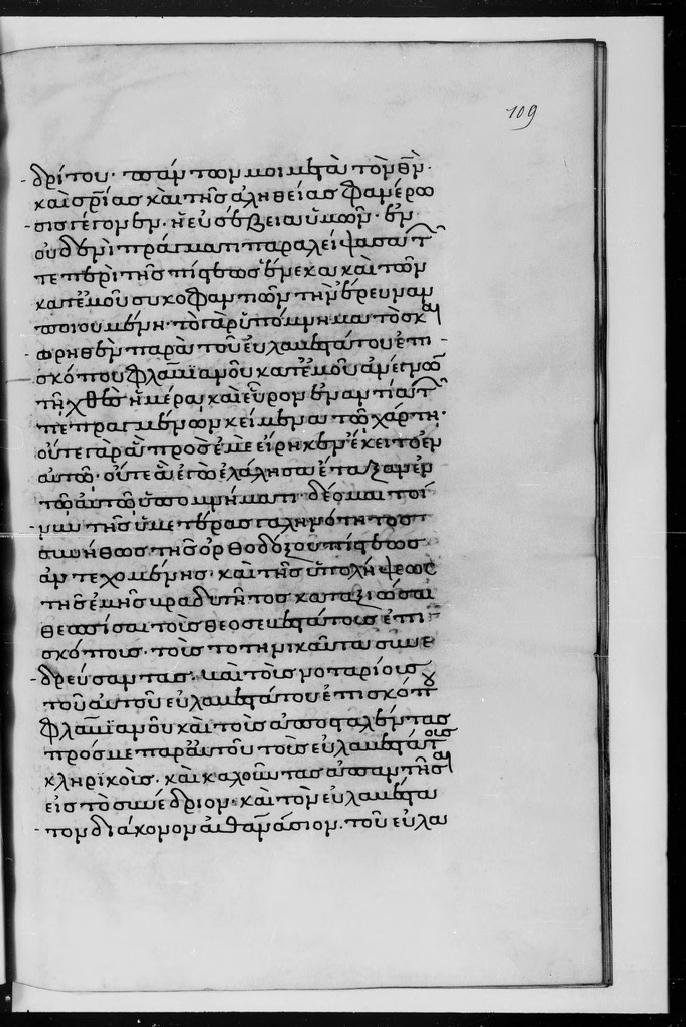 109
δρίτου· πάντων μοι μετὰ τὸν θν̅·
καὶ σρ̅ίας καὶ τῆς ἀληθείας φανέρω
σις γέγονεν· ἡ εὐσέβεια ὑμῶν· ἐν
οὐδενὶ πράγματι παραλείψασα τ
τε περὶ τῆς πίστεως ἕνεκα καὶ τῶν
κατ' ἐμοῦ συκοφαντιῶν τὴν ἔρευναν
ποιουμένη· τὸ γὰρ ὑπόμνημα τὸ σκαι
ωρηθὲν παρὰ τοῦ εὐλαβεστάτου ἐπι
σκόπου φλαυϊανοῦ κατ' ἐμοῦ ἀνέγνων
τῇ χθὲς ἡμέρᾳ καὶ εὗρον ἐναντία τ
πεπραγμένων κείμενα τῷ χάρτῃ·
οὔτε γὰρ ἃ πρὸς ἐμὲ εἴρηκεν ἔκειτο ἐν
αὐτῷ· οὔτε ἃ ἐγὼ ἐλάλησα ἐτάξαν ἐν
τῷ αὐτῷ ὑπομνήματι· δέομαι τοί
νυν τῆς ὑμετέρας γαληνότητος
συνήθως τῆς ὀρθοδόξου πίστεως
ἀντεχομένης· καὶ τῆς ὑπολήψεως
τῆς ἐμῆς βραδυτῆτος καταξιῶσαι
θεσπίσαι τοῖς θεοσεβεστάτοις ἐπι
σκόποις· τοῖς τοτηνικαῦτα συνε
δρεύσαντας· καὶ τοῖς νοταρίοις
τοῦ αὐτοῦ εὐλαβεστάτου ἐπισκόπου
φλαυϊανοῦ καὶ τοῖς ἀποσταλέντας
πρός με παρ' αὐτοῦ τοῖς εὐλαβεστάτοις
κληρϊκοῖς· καὶ καλοῦντας ἀπαντῆσαι
εἰς τὸ συνέδριον· καὶ τὸν εὐλαβέστα
τον διάκονον ἀθανάσιον· τοῦ εὐλα